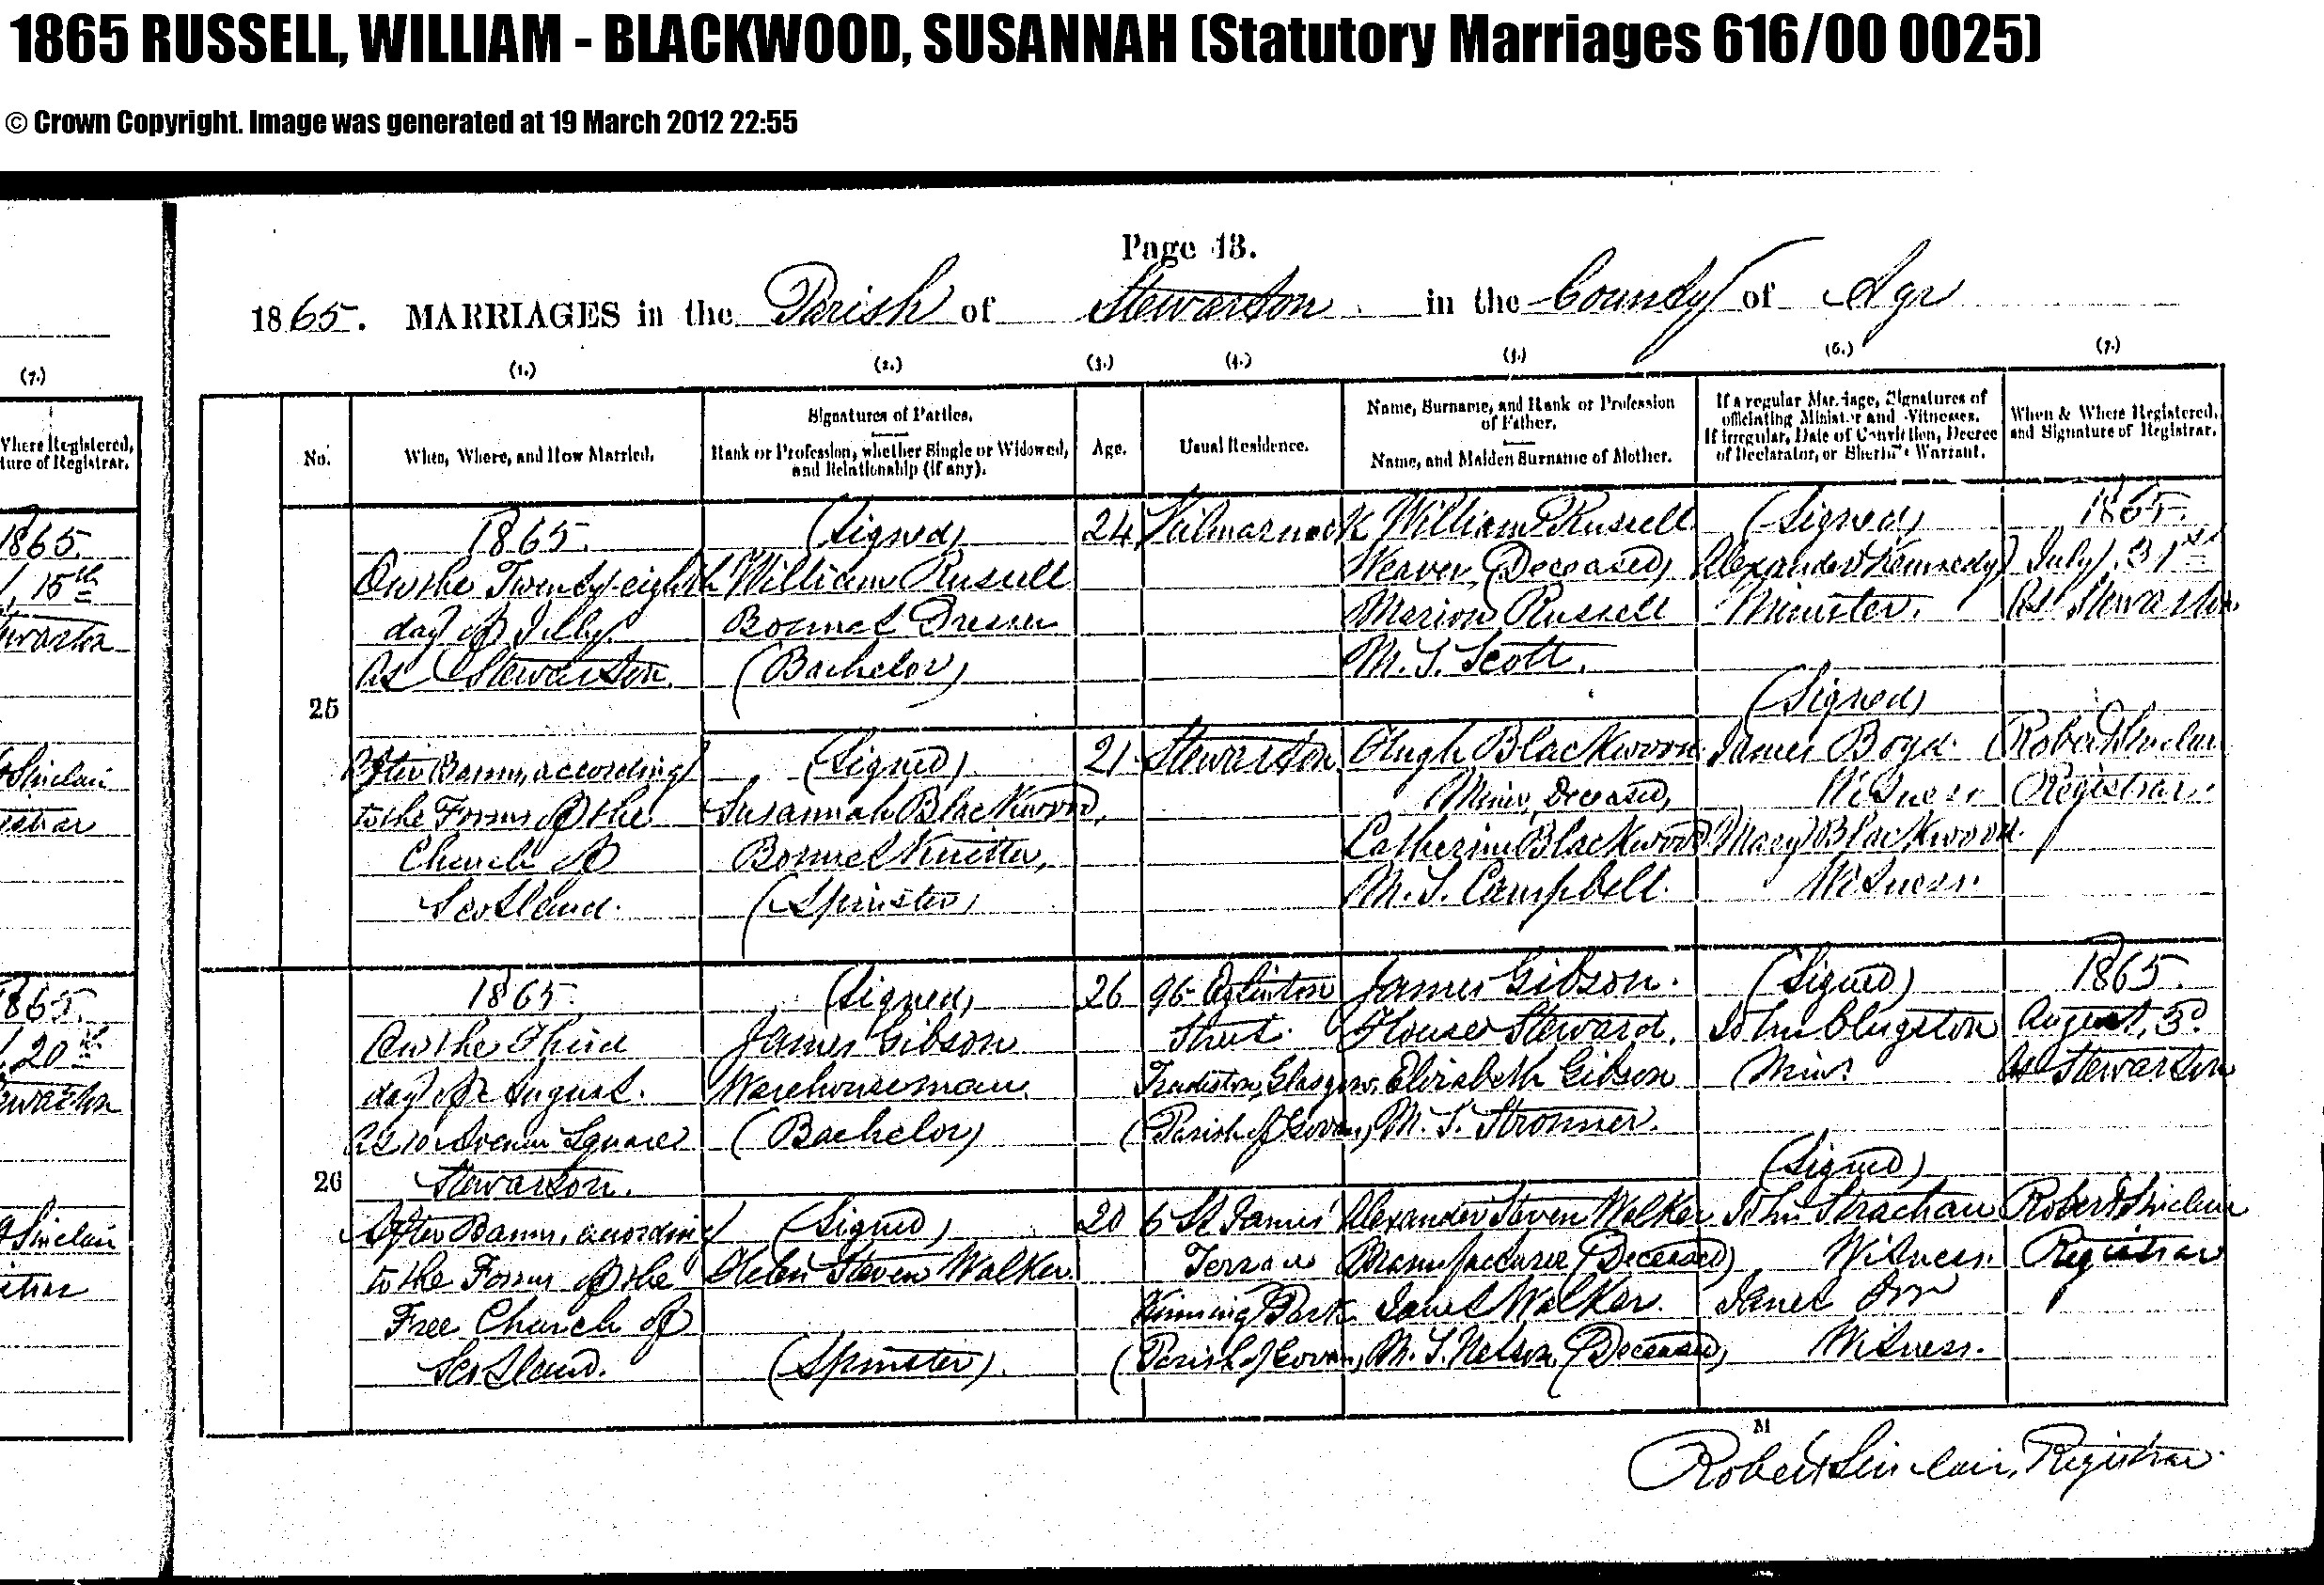 1865 RUSSELL, WILLIAM - BLACKWOOD, SUSANNAH (Statutory Marriages 616/00 0025)
© Crown Copyright. Image was generated at 19 March 2012 22:55
Page 13.
1865. MARRIAGES in the Parish of Stewarton in the County of Ayr
(7.)
(1.) (2.) (3.) (4.) (5.) (6.) (7.)
Where Registered,
ture of Registrar.
No.
When, Where, and How Married.
Signatures of Parties.
Rank or Profession, whether Single or Widowed,
and Relationship (if any).
Age.
Usual Residence.
Name, Surname, and Rank or Profession
of Father.
Name, and Maiden Surname of Mother.
If a regular Marriage, Signatures of
officiating Minister and Witnesses.
If irregular, Date of Conviction, Decree
of Declarator, or Sheriff's Warrant.
When & Where Registered,
and Signature of Registrar.
1865.
15th
warton
Sinclair
istrar
1865.
20th
warton
Sinclair
istrar
25
1865.
On the Twenty-eighth
day of July
At Stewarton.
After Banns, according
to the Forms of the
Church of
Scotland.
(Signed)
William Russell
Bonnet Dresser
(Bachelor)
(Signed)
Susannah Blackwood,
Bonnet Knitter,
(Spinster)
24
21
Kilmarnock
Stewarton
William Russell
Weaver (Deceased)
Marion Russell
M.S. Scott.
Hugh Blackwood
Miner, Deceased,
Catherine Blackwood
M.S. Campbell.
(Signed)
Alexander Kennedy
Minister.
(Signed)
James Boyd.
Witness.
Mary Blackwood.
Witness.
1865.
July, 31st
At Stewarton
Robert Sinclair
Registrar.
26
1865.
On the Third
day of August.
At 10 Avenue Square
Stewarton.
After Banns, according
to the Forms of the
Free Church of
Scotland.
(Signed)
James Gibson
Warehouseman.
(Bachelor)
(Signed)
Helen Steven Walker
(Spinster).
26
20
96 Eglinton
Street.
Tradeston, Glasgow,
(Parish of Govan)
6 St James'
Terrace
Kinning Park
(Parish of Govan)
James Gibson.
House Steward.
Elizabeth Gibson
M.S. Stronner.
Alexander Steven Walker
Manufacturer (Deceased)
Janet Walker.
M.S. Nelson (Deceased)
(Signed)
John Clugston
Minr.
(Signed)
John Strachan
Witness.
Janet Orr
Witness.
1865.
August, 3d
At Stewarton
Robert Sinclair
Registrar
M
Robert Sinclair, Registrar.